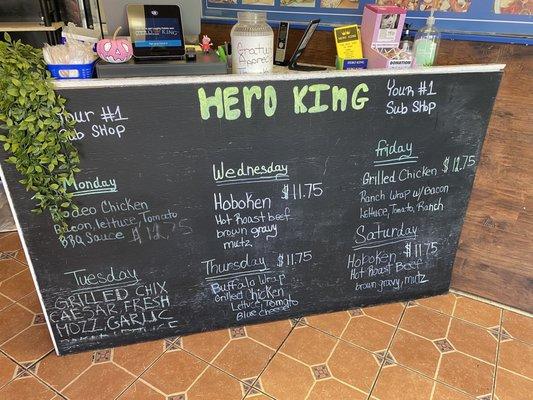 HERO KING
Your #1
Sub Shop
HERO KING
Your #1
Sub Shop
DONATION
Monday
Rodeo Chicken
Bacon, lettuce, Tomato
BBQ Sauce
Tuesday
GRILLED CHIX
CAESAR, FRESH
MOZZ, GARLIC
Wednesday
Hoboken $11.75
Hot Roast beef
brown gravy
mutz
Thursday $11.75
Buffalo Wrap
Grilled Chicken
Lettuce, Tomato
Blue Cheese
Friday
Grilled Chicken $12.75
Ranch Wrap w/Bacon
Lettuce, Tomato, Ranch
Saturday
Hoboken $11.75
Hot Roast Beef
brown gravy, mutz